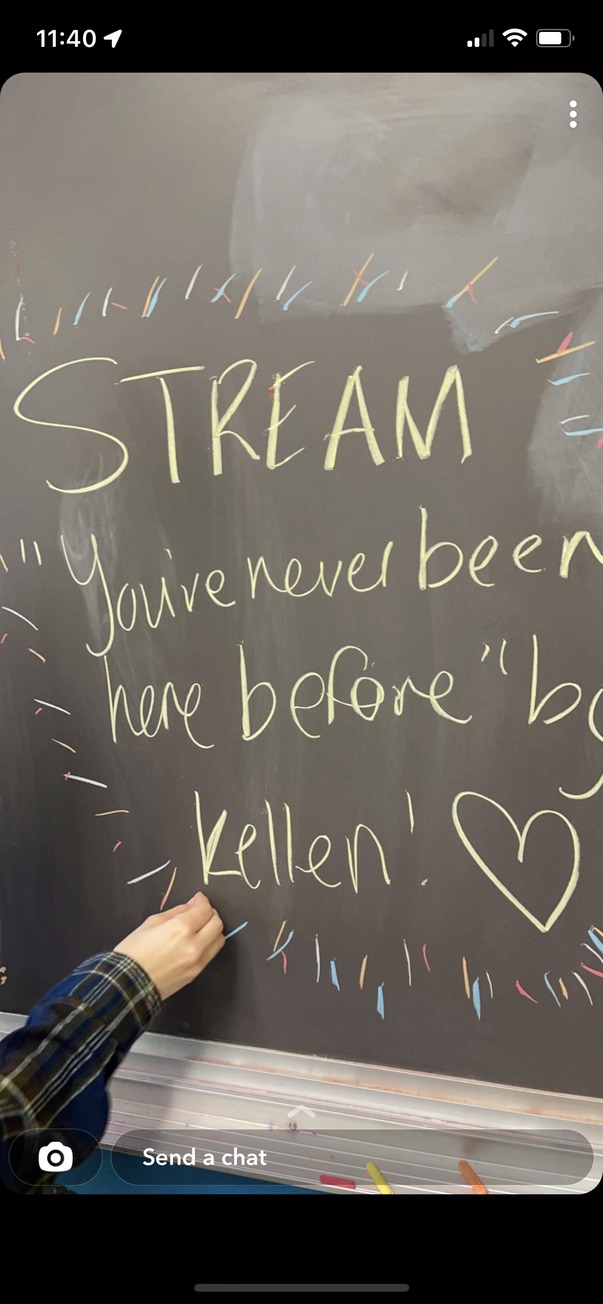 11:40
STREAM
"You've never been
here before" by
kellen!
Send a chat